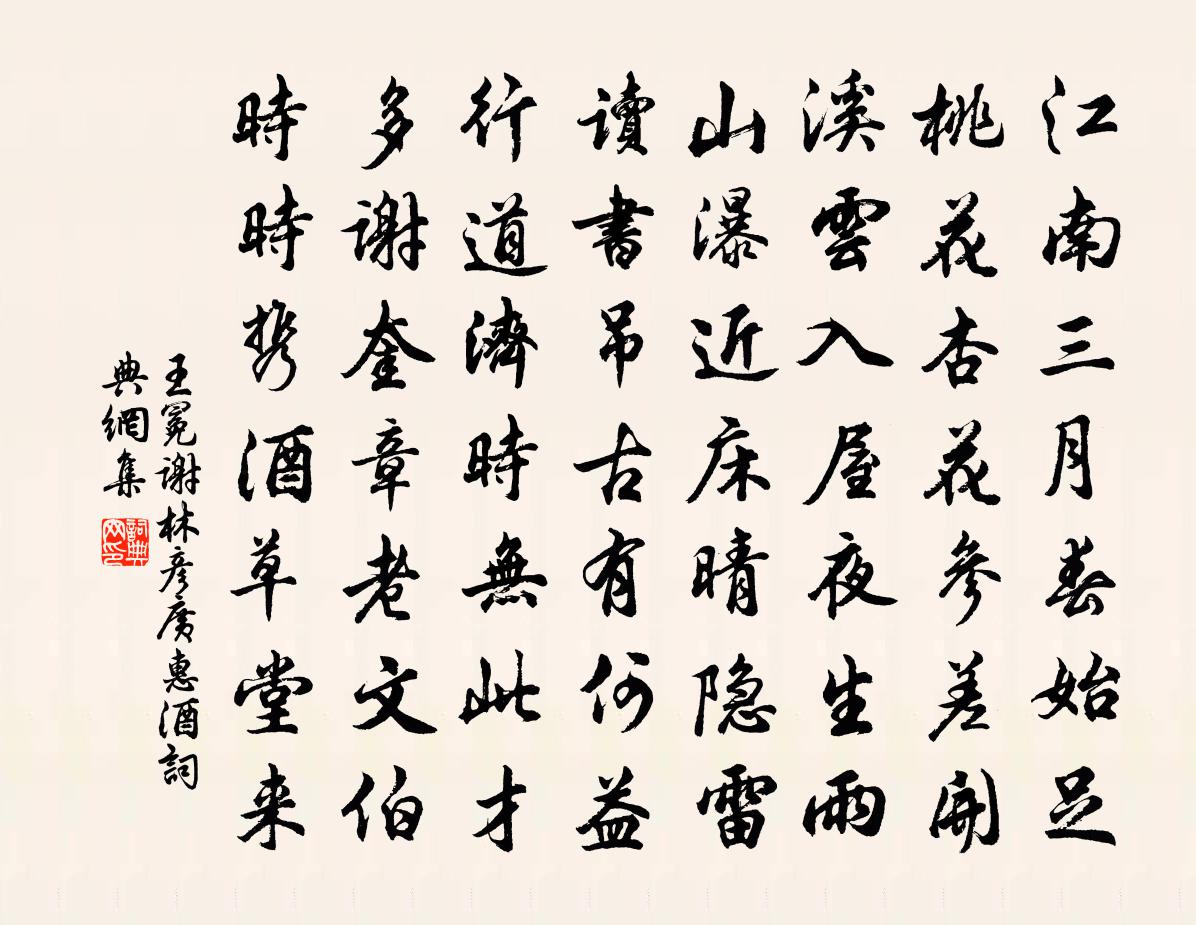 江南三月春始足
桃花杏花參差開
溪雲入屋夜生雨
山瀑近床晴隐雷
讀書吊古有何益
行道濟時無此才
多謝奎章老文伯
時時携酒草堂来
王冕謝林彦廣惠酒詞
典網集
詞典
网印